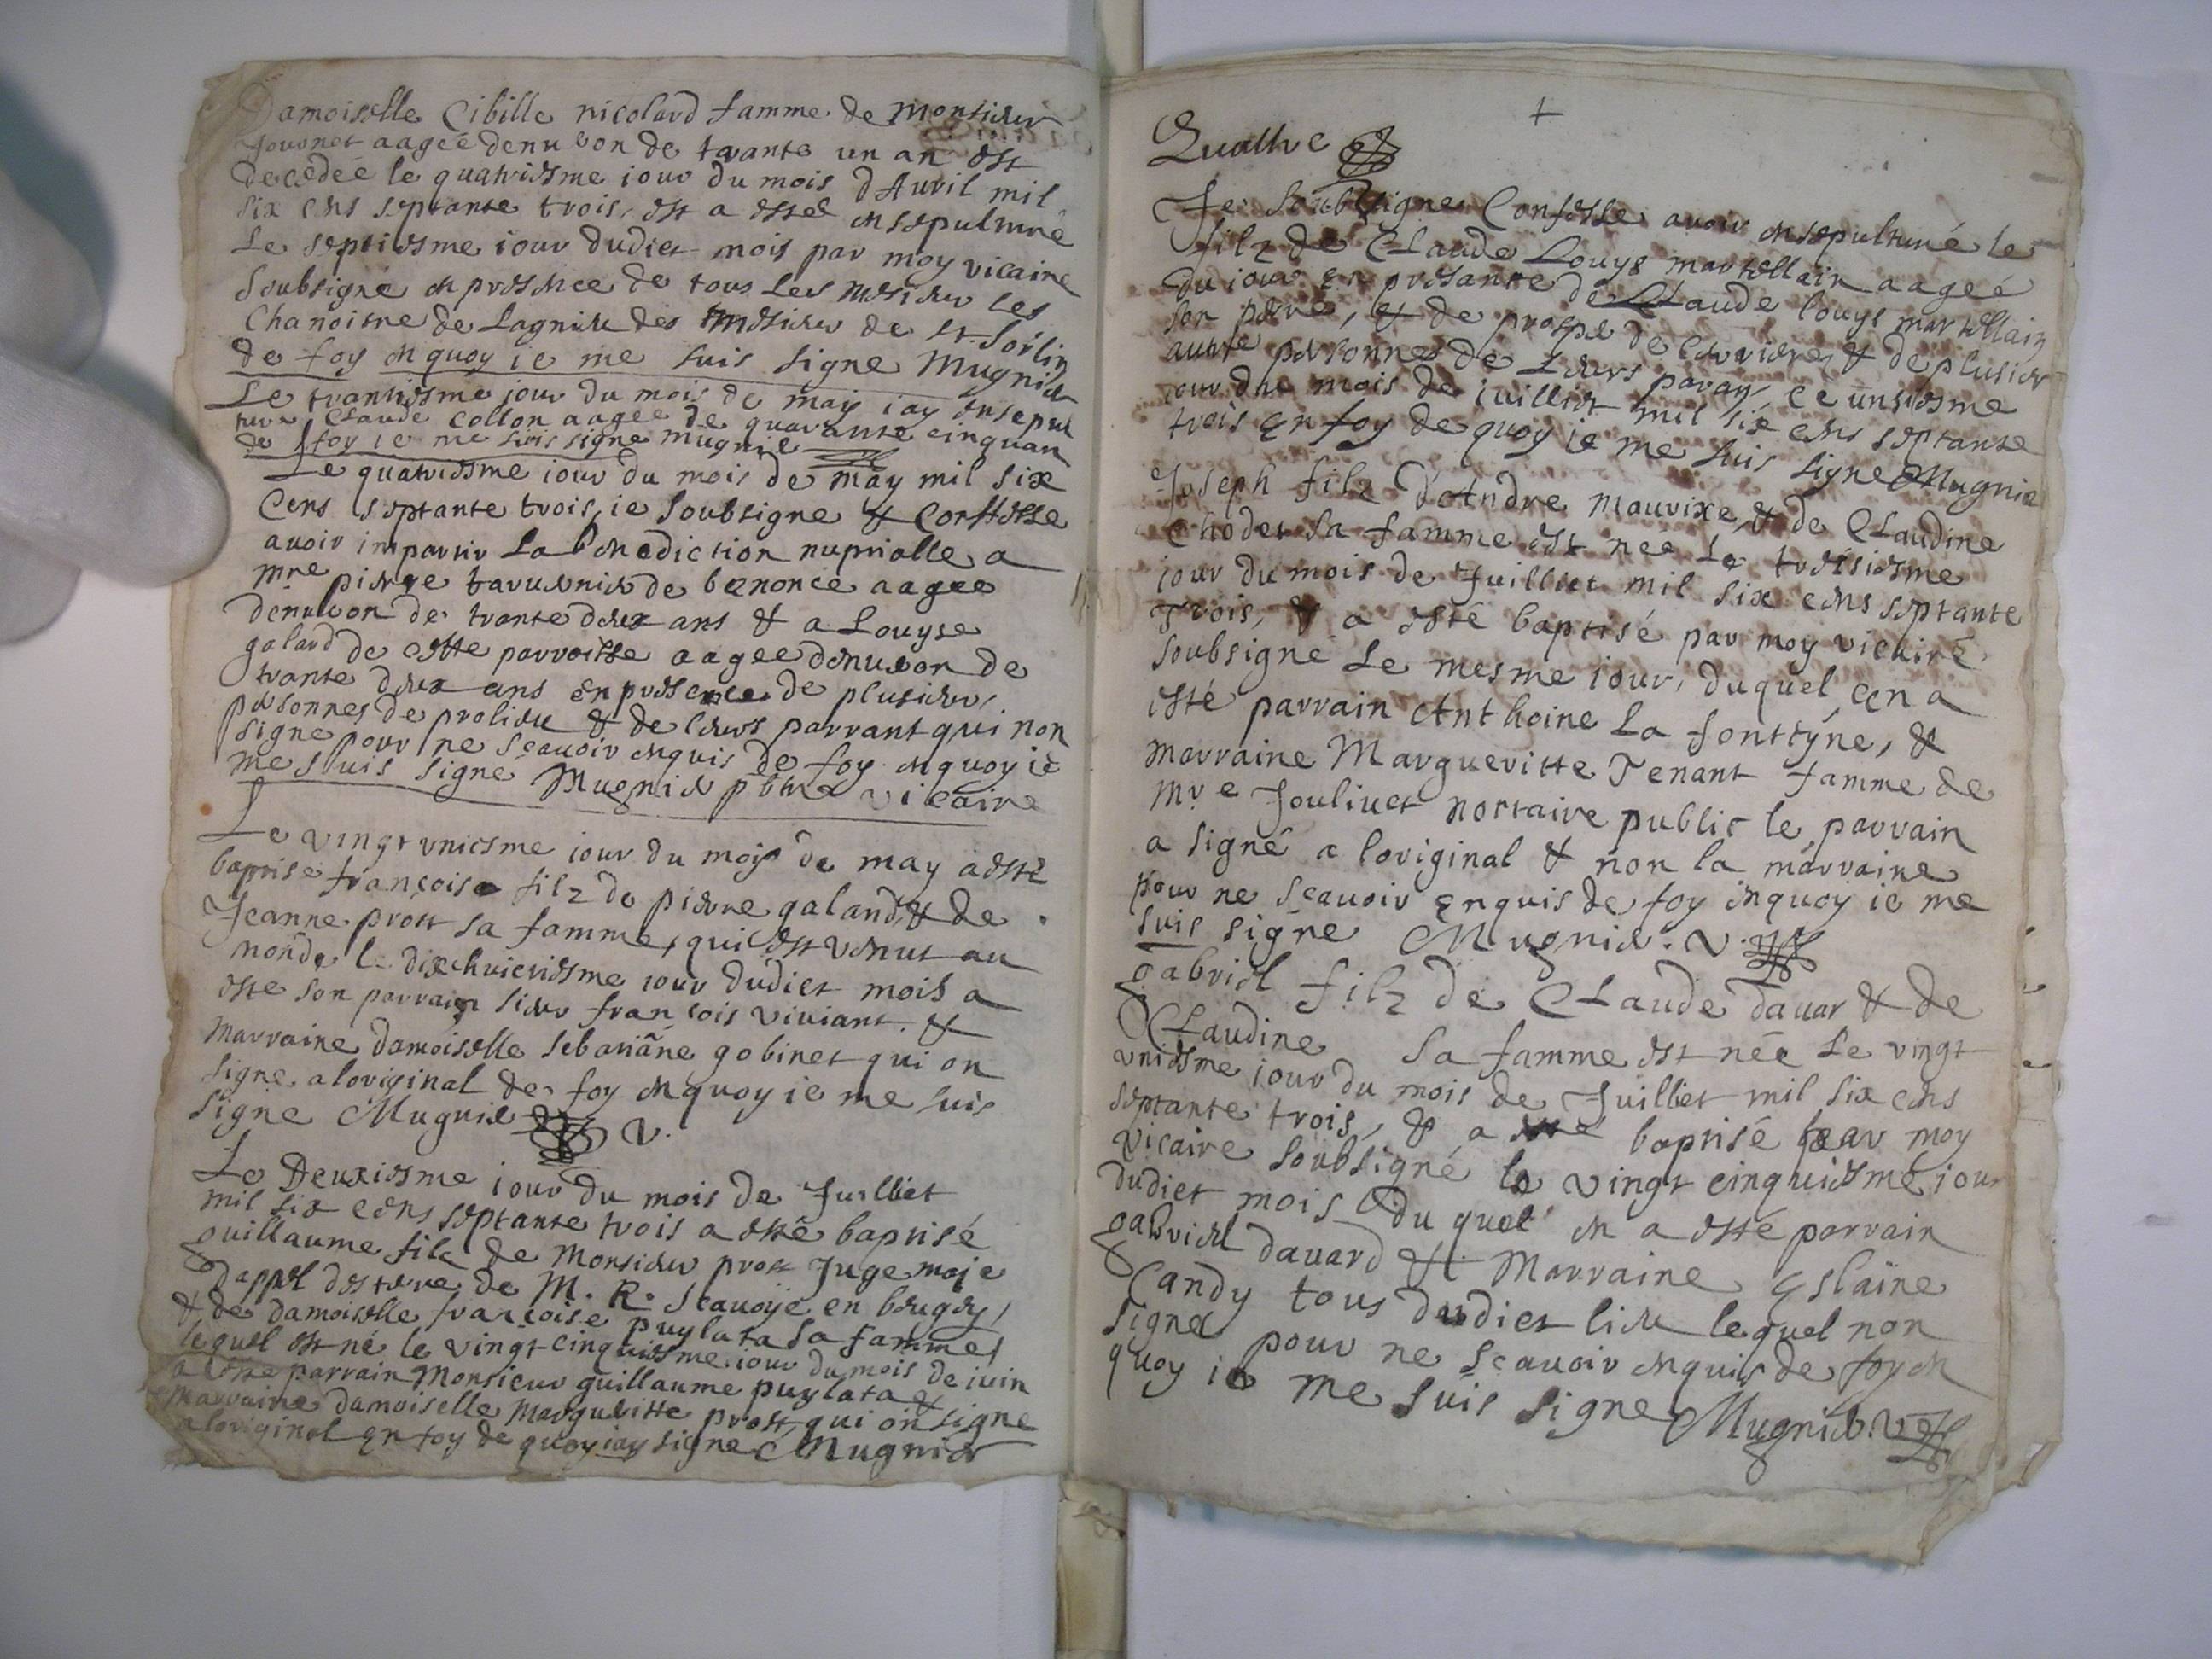 Damoiselle Cibille nicolard famme de monsieur
Journet aagée denuiron de trante un an est
decedée le quatriesme iour du mois d'Auril mil
six cens septante trois, est a estee ensepulturé
Le septiesme iour dudict mois par moy vicaire
soubsigné en presence de tous Les Mesieur les
Chanoisne de Lagnieu des Mesieur de St. Sorlin
de foy en quoy ie me suis signe Mugnier
Le trantiesme jour du mois de may iay ensepul
ture Claude Collon aagee de quarante cinq an
de foy ie me suis signe mugnie
Le quatriesme iour du mois de may mil six
Cens septante trois, ie soubsigne & Confesse
auoir impartir La benediction nuptialle a
mre pierre tavernier de benonce aagee
denuiron de trante deux ans & a Louyse
galard de cette parroisse aagee denuiron de
trante deux ans en presence de plusieur,
personnes de prolieu & de leurs parrant qui non
signe pour ne scauoir enquis de foy en quoy ie
me suis signé Mugnier pbtre vicaire
Le vingt vniesme iour du mois de may a esté
baptise françoise filz de pierre galand & de
Jeanne prost sa famme, qui est venut au
monde le dixhuictiesme iour dudict mois a
este son parrain sieur françois viuiant. &
marraine damoiselle sebastiane gobinet qui on
signe a loriginal de foy en quoy ie me suis
signe Mugnie V.
Le Deuxiesme iour du mois de Juilliet
mil six cens septante trois a esté baptisé
guillaume filz de Monsieur prost Juge maje
dappel des terre de M. R. Scauoye en beugey,
& de damoiselle françoise puylata sa famme,
lequel est né le vingt cinquiesme iour du mois de iuin
a este parrain Monsieur guillaume puylata &
marraine damoiselle Margueritte prost, qui on signe
a loriginal en foy de quoy iay signe Mugnier
+
Quattre
Je soubsigne Confesse auoir ensepulturé le
filz de Claude Louys martellain aageé
du iour en presante de Claude louys martellain
son pere, & de prospe de & de plusieur
autre personnes de Leurs paran, ce unsiesme
iour du mois de iuilliet mil six cens septante
trois en foy de quoy ie me suis signe Mugnie
Joseph filz d'Andre Mauvixe, & de Claudine
Chodet sa famme est née Le troisiesme
iour du mois de Juilliet mil six cens septante
Trois, & a esté baptisé par moy vicaire
soubsigne Le mesme iour, duquel en a
esté parrain Anthoine La fonttyne, &
marraine Margueritte Tenant famme de
Mre Jouliuet nottaire public le parrain
a signé a loriginal & non la marraine
pour ne scauoir enquis de foy en quoy ie me
suis signe Mugnier. V.
gabriel filz de Claude dauar & de
Claudine sa famme est née Le vingt
vniesme iour du mois de Juilliet mil six cens
septante trois, & a esté baptisé par moy
vicaire soubsigné le vingt cinquiesme iour
dudict mois du quel en a esté parrain
gabriel dauard & Marraine Eslaine
Candy tous dudict lieu lequel non
signe pour ne scauoir enquis de foy en
quoy ie me suis signe Mugnier. V.